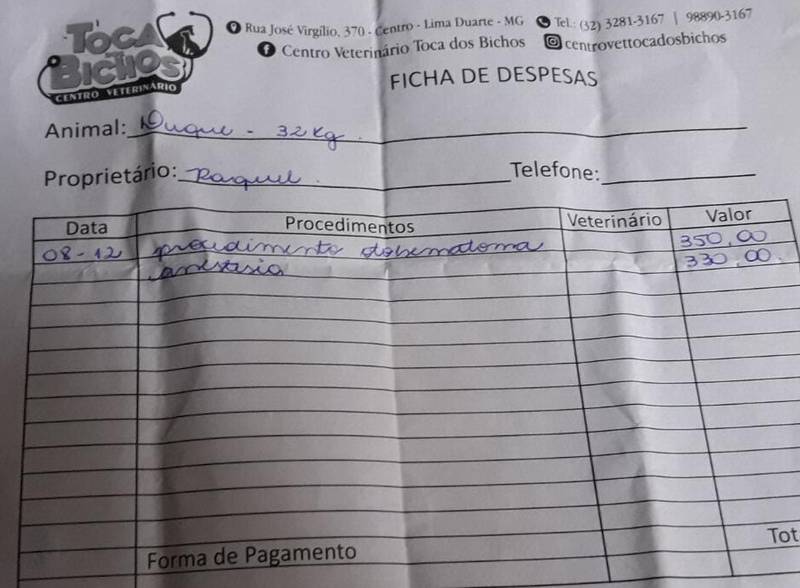 TOCA
BICHOS
CENTRO VETERINÁRIO
Rua José Virgílio, 370 - Centro - Lima Duarte - MG Tel.: (32) 3281-3167 | 98890-3167
Centro Veterinário Toca dos Bichos centrovettocadosbichos
FICHA DE DESPESAS
Animal: Duque - 32 kg.
Proprietário: Raquel. Telefone:
Data Procedimentos Veterinário Valor
08-12 procedimento otohematoma 350,00
anestesia 330,00.
Tot
Forma de Pagamento